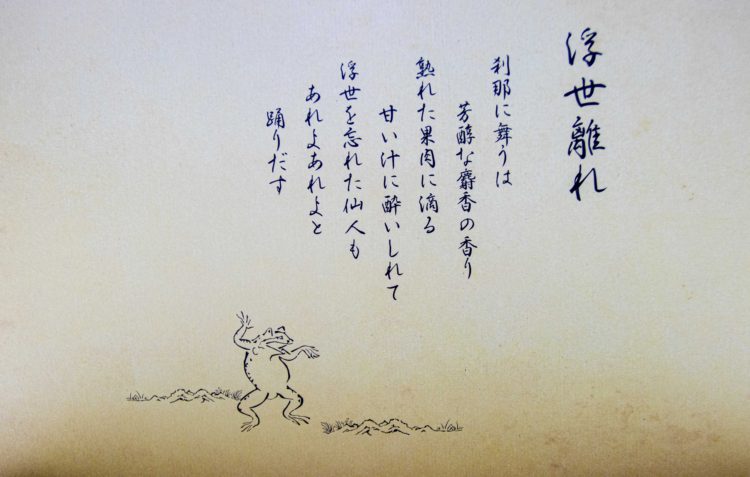 浮世離れ
刹那に舞うは
芳醇な麝香の香り
熟れた果肉に滴る
甘い汁に酔いしれて
浮世を忘れた仙人も
あれよあれよと
踊りだす